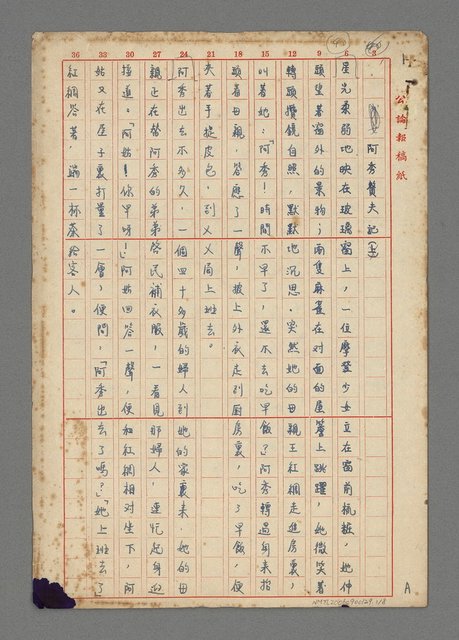 公論報稿紙
阿秀贅夫記(上)
星光柔弱地映在玻璃窗上,一位摩登少女立在窗前梳粧,她伸
頸望着窗外的景物;兩隻麻雀在對面的屋簷上跳躍,她微笑着
轉頭攬鏡自照,默默地沉思。突然她的母親王紅綢走進房裏,
叫着她:「阿秀!時間不早了,還不去吃早飯?」阿秀轉過身來
着母親,答應了一聲,披上外衣走到廚房裏,吃了早飯,便
夾着手提皮包,到××局上班去。
阿秀出去不多久,一個四十多歲的婦人到她的家裏來。她的母
親正在替阿秀的弟弟啓民補衣服,一看見那婦人,連忙起身迎
接道:「阿姑!你早呀!」阿姑回答一聲,便和紅綢相對坐下,阿
姑又在屋子裏打量了一會,便問:「阿秀出去了嗎?」「她上班去了
紅綢答著,端一杯茶給客人。
3 6 9 12 15 18 21 24 27 30 33 36
A